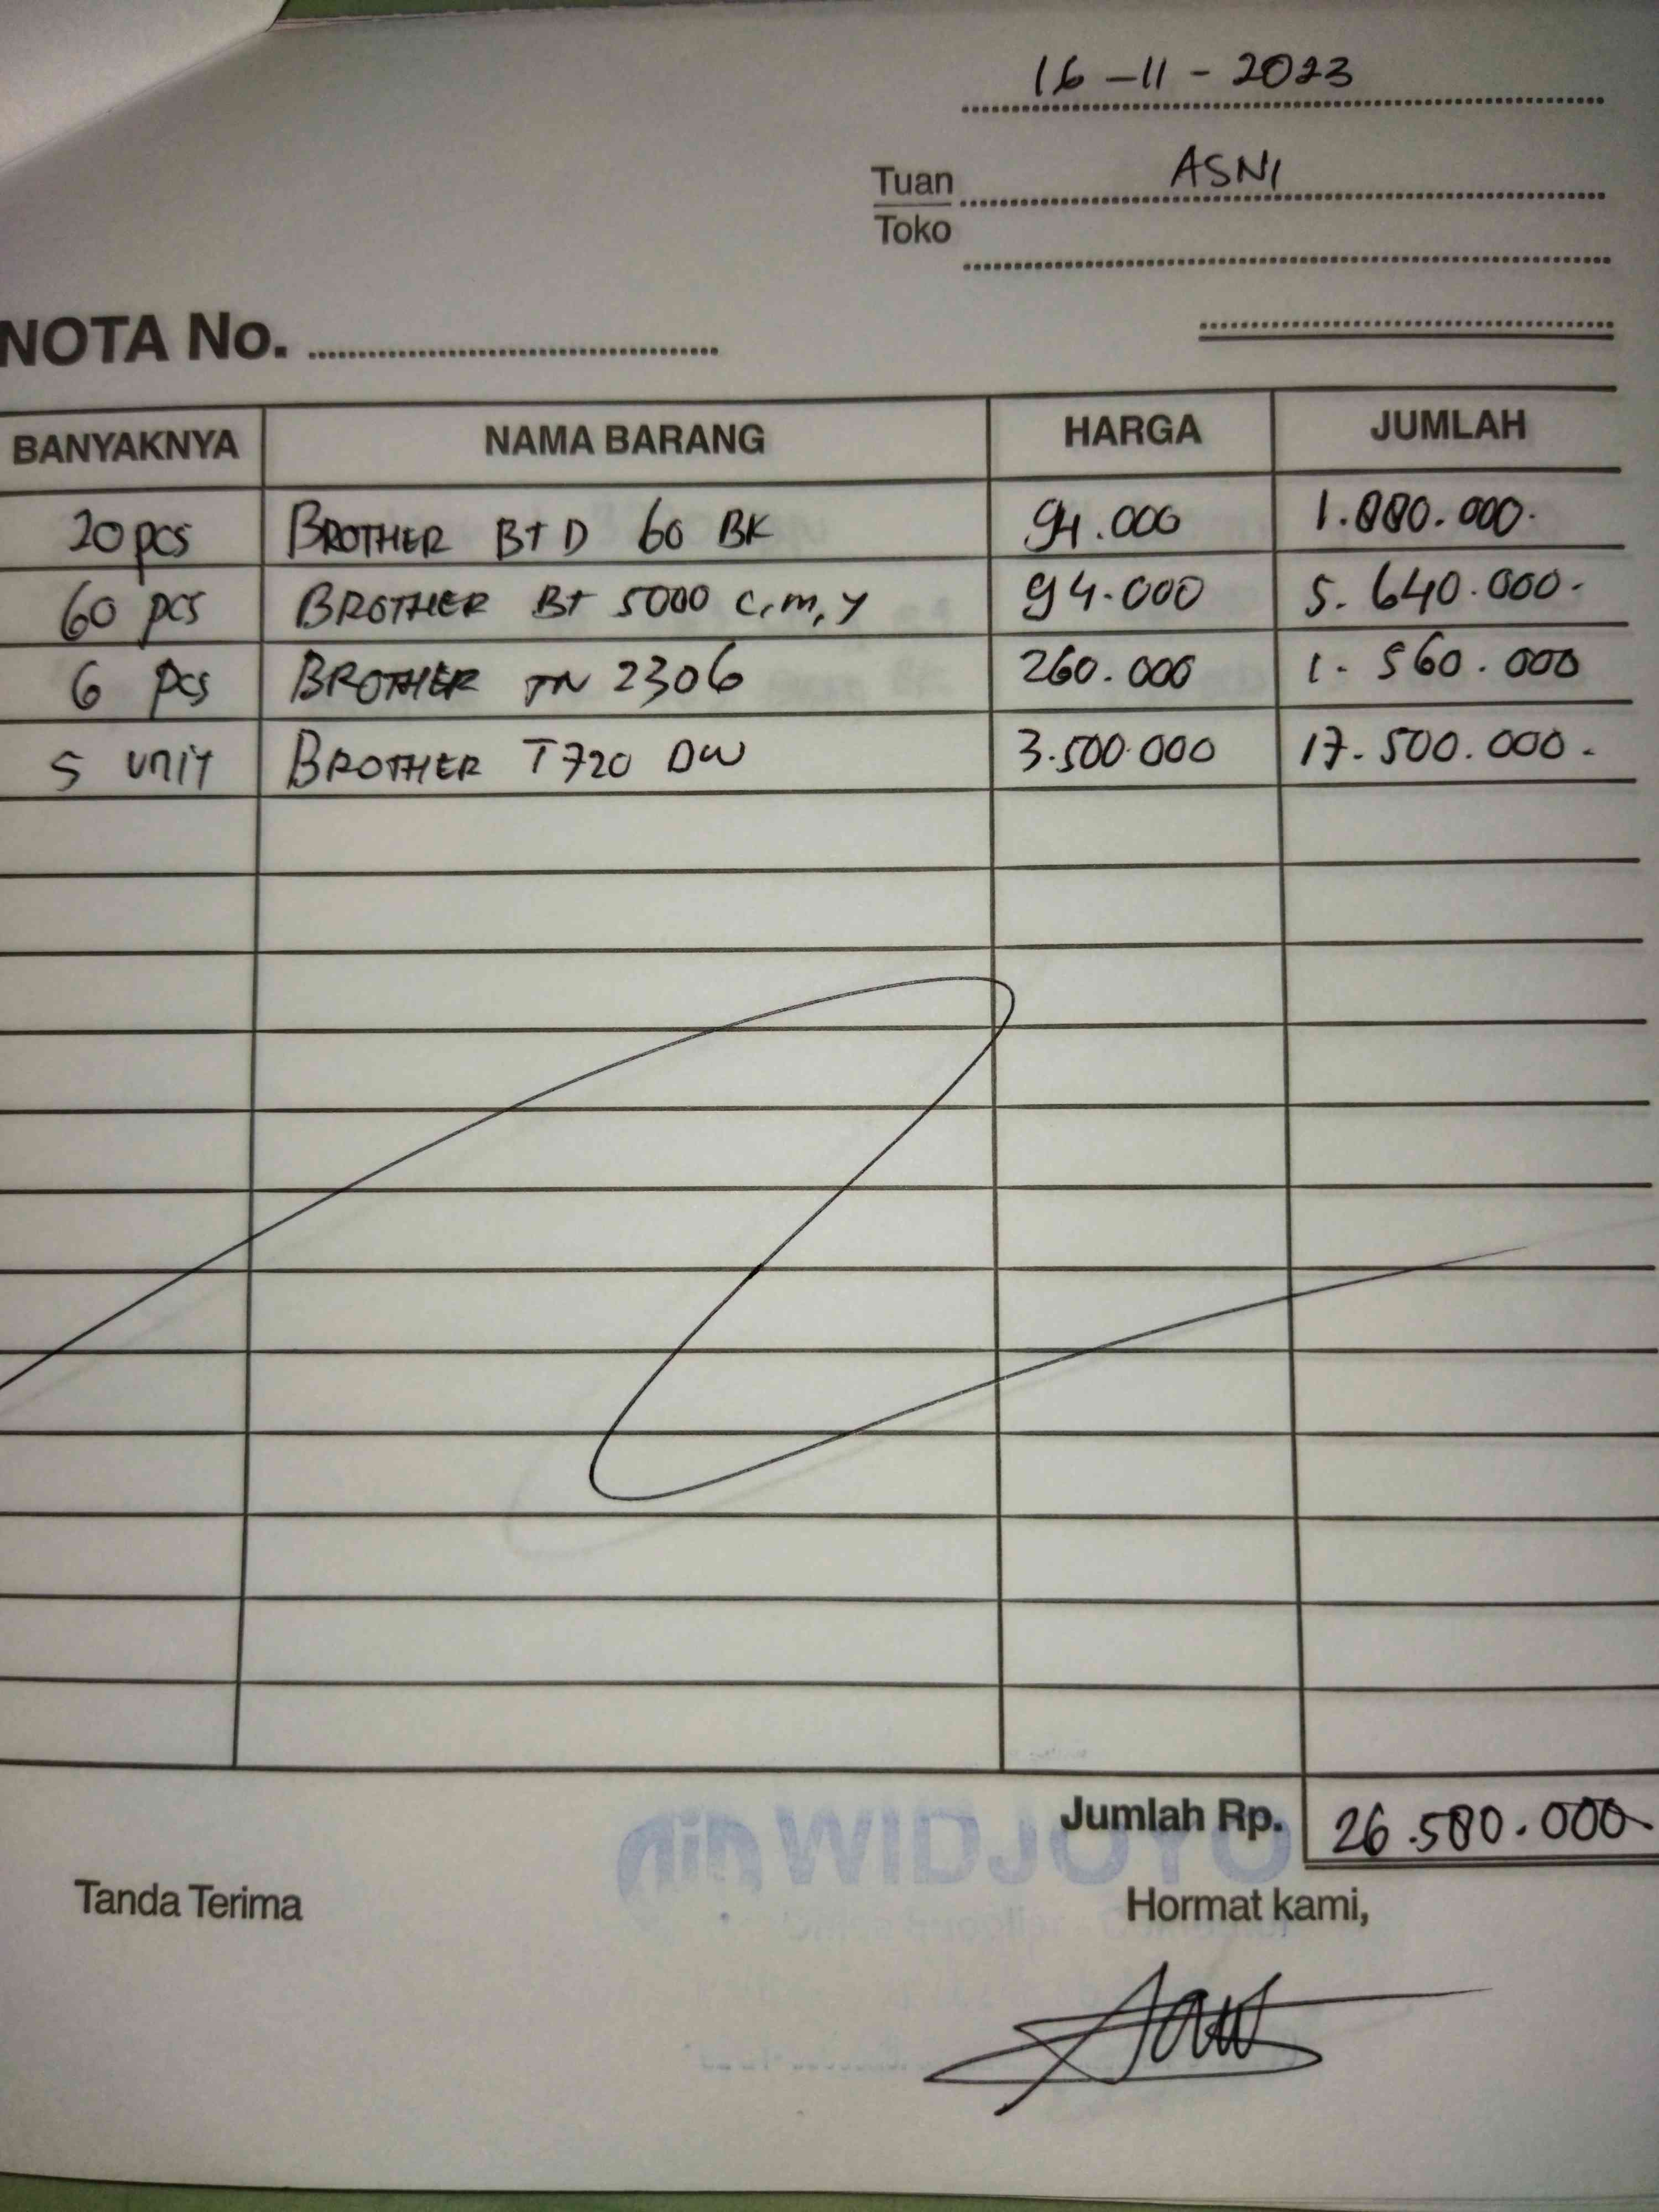 16-11-2023
Tuan ASNI
Toko
NOTA No.
BANYAKNYA NAMA BARANG HARGA JUMLAH
20 pcs BROTHER BTD 60 BK 94.000 1.880.000.
60 pcs BROTHER BT 5000 c,m,y 94.000 5.640.000.
6 pcs BROTHER TN 2306 260.000 1.560.000
5 unit BROTHER T720 DW 3.500.000 17.500.000.
Jumlah Rp. 26.580.000
Tanda Terima Hormat kami,
WIDJOYO